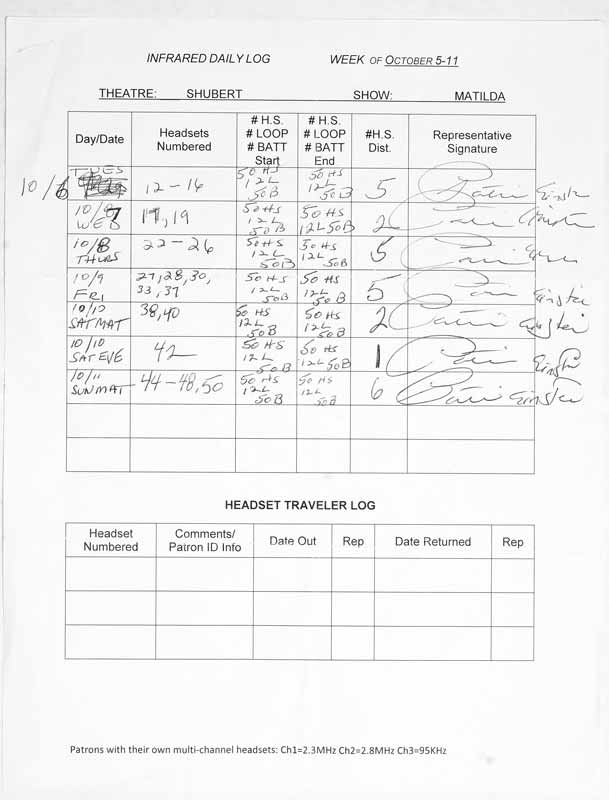 INFRARED DAILY LOG WEEK OF OCTOBER 5-11
THEATRE: SHUBERT SHOW: MATILDA
Day/Date Headsets Numbered # H.S. # LOOP # BATT Start # H.S. # LOOP # BATT End #H.S. Dist. Representative Signature
10/6 TUES 12-16 50 HS 12L 50B 50 HS 12L 50B 5
10/7 WED 17,19 50 HS 12L 50B 50 HS 12L 50B 2
10/8 THURS 22-26 50 HS 12L 50B 50 HS 12L 50B 5
10/9 FRI 27,28,30, 33,37 50 HS 12L 50B 50 HS 12L 50B 5
10/10 SAT MAT 38,40 50 HS 12L 50B 50 HS 12L 50B 2
10/10 SAT EVE 42 50 HS 12L 50B 50 HS 12L 50B 1
10/11 SUN MAT 44-48,50 50 HS 12L 50B 50 HS 12L 50B 6
HEADSET TRAVELER LOG
Headset Numbered Comments/ Patron ID Info Date Out Rep Date Returned Rep
Patrons with their own multi-channel headsets: Ch1=2.3MHz Ch2=2.8MHz Ch3=95KHz